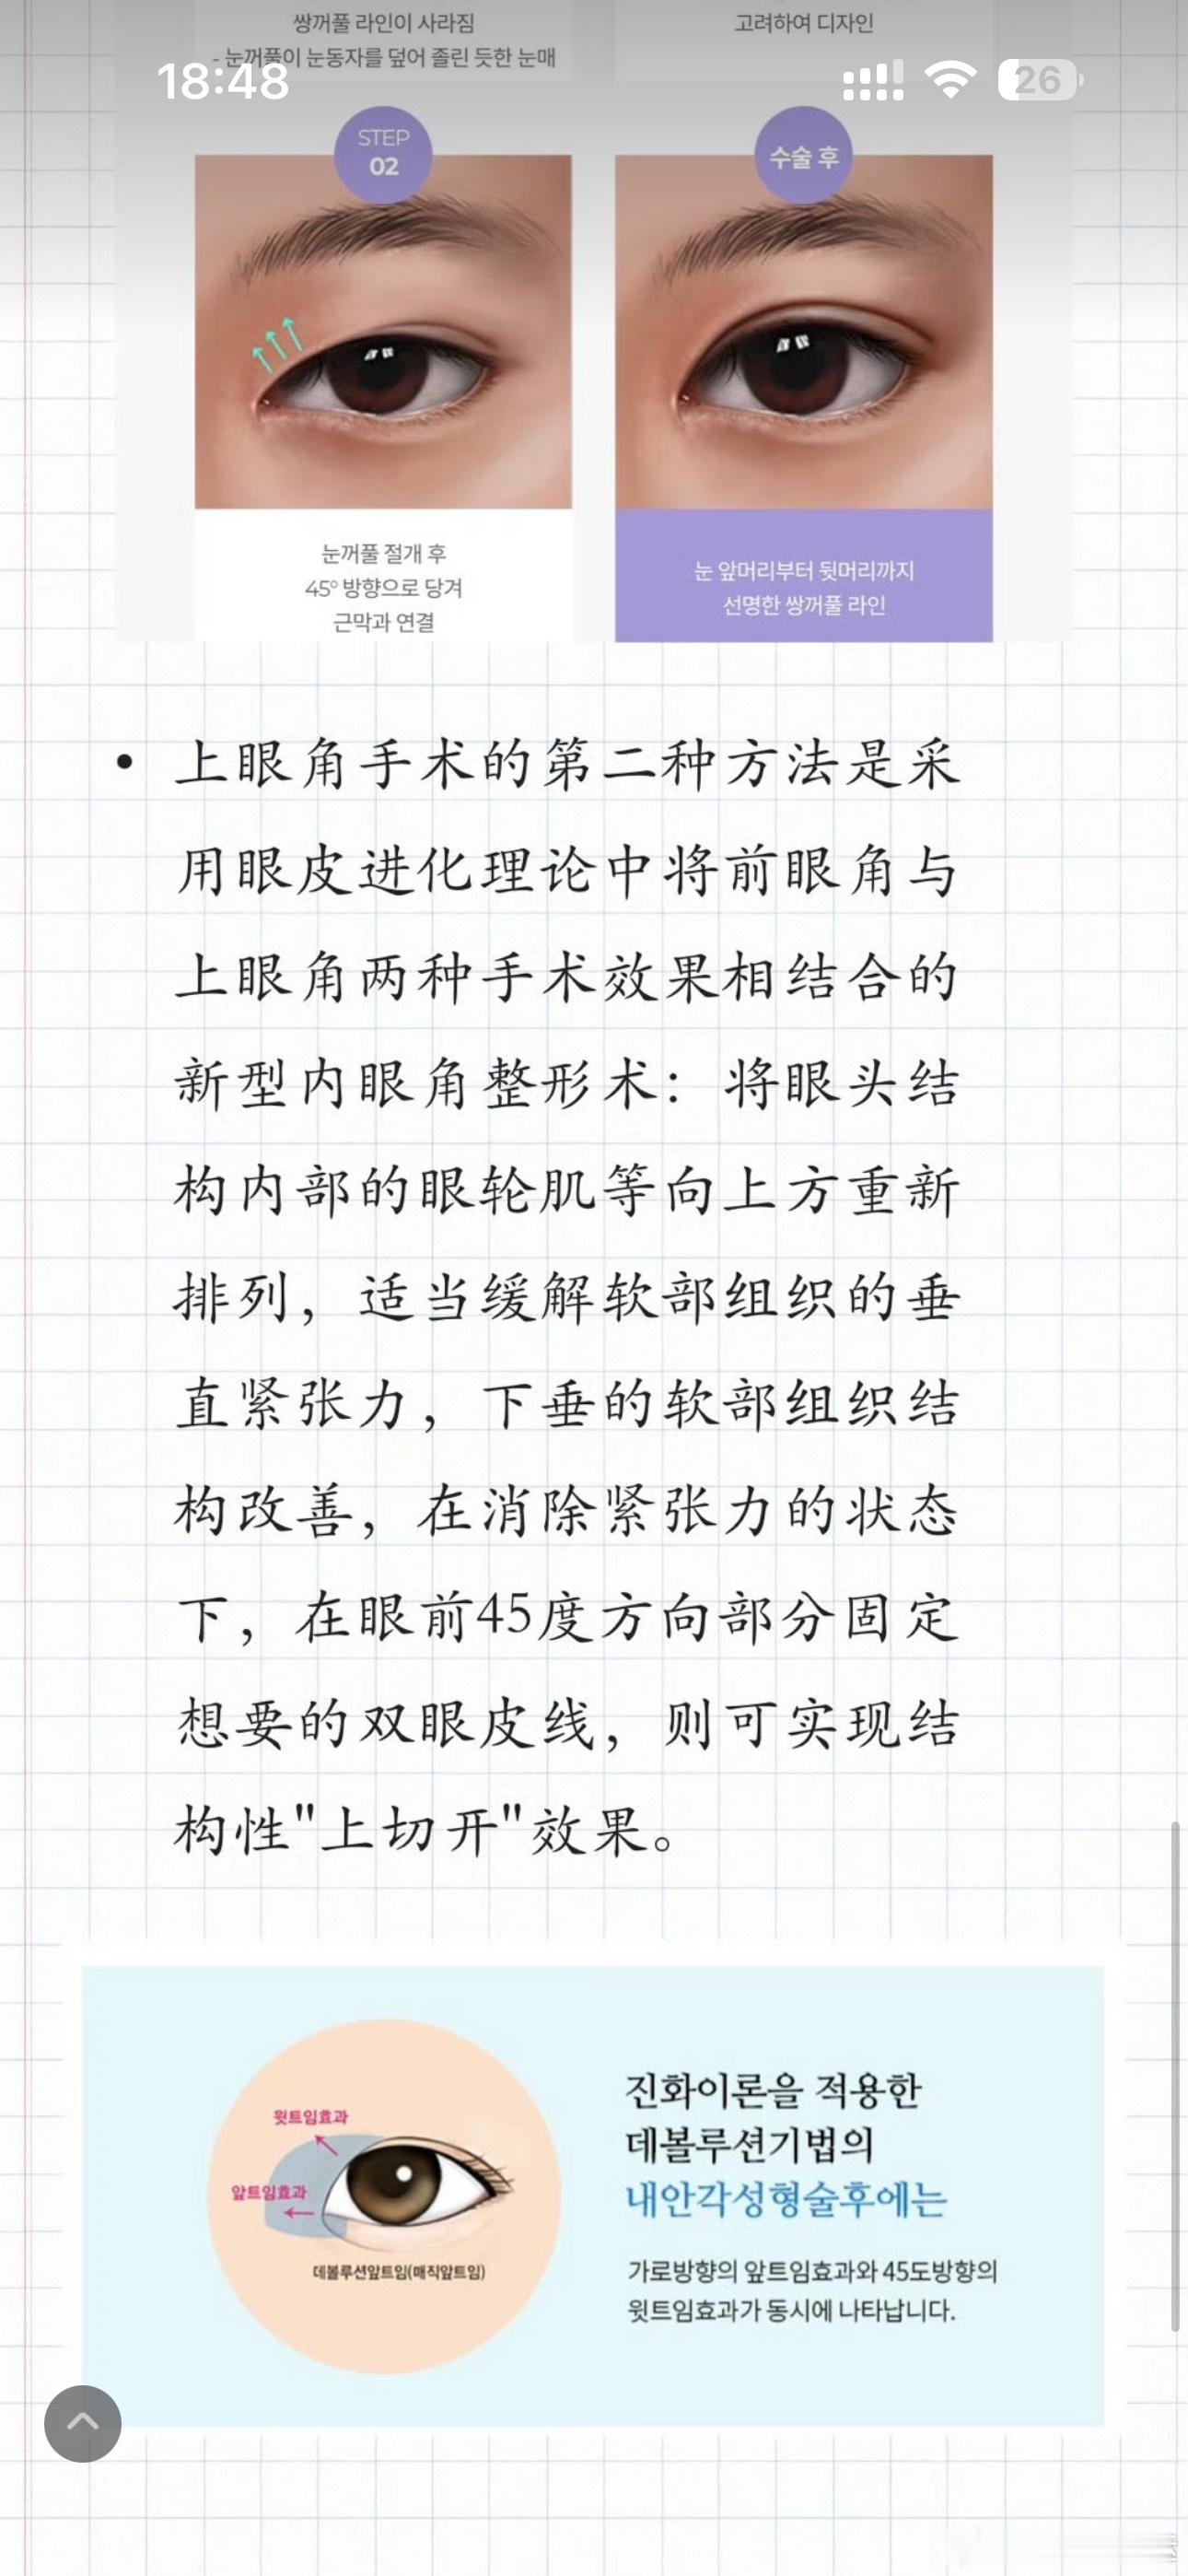 쌍꺼풀 라인이 사라짐
- 눈꺼풀이 눈동자를 덮어 졸린 듯한 눈매
고려하여 디자인
18:48
26
STEP
02
수술 후
눈꺼풀 절개 후
45° 방향으로 당겨
근막과 연결
눈 앞머리부터 뒷머리까지
선명한 쌍꺼풀 라인
• 上眼角手术的第二种方法是采
用眼皮进化理论中将前眼角与
上眼角两种手术效果相结合的
新型内眼角整形术：将眼头结
构内部的眼轮肌等向上方重新
排列，适当缓解软部组织的垂
直紧张力，下垂的软部组织结
构改善，在消除紧张力的状态
下，在眼前45度方向部分固定
想要的双眼皮线，则可实现结
构性"上切开"效果。
윗트임효과
앞트임효과
데볼루션앞트임(매직앞트임)
진화이론을 적용한
데볼루션기법의
내안각성형술후에는
가로방향의 앞트임효과와 45도방향의
윗트임효과가 동시에 나타납니다.